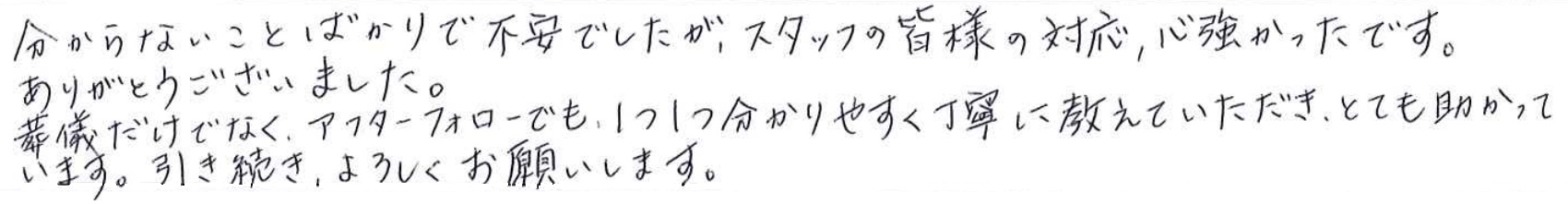 分からないことばかりで不安でしたが、スタッフの皆様の対応、心強かったです。
ありがとうございました。
葬儀だけでなく、アフターフォローでも、1つ1つ分かりやすく丁寧に教えていただき、とても助かって
います。引き続き、よろしくお願いします。